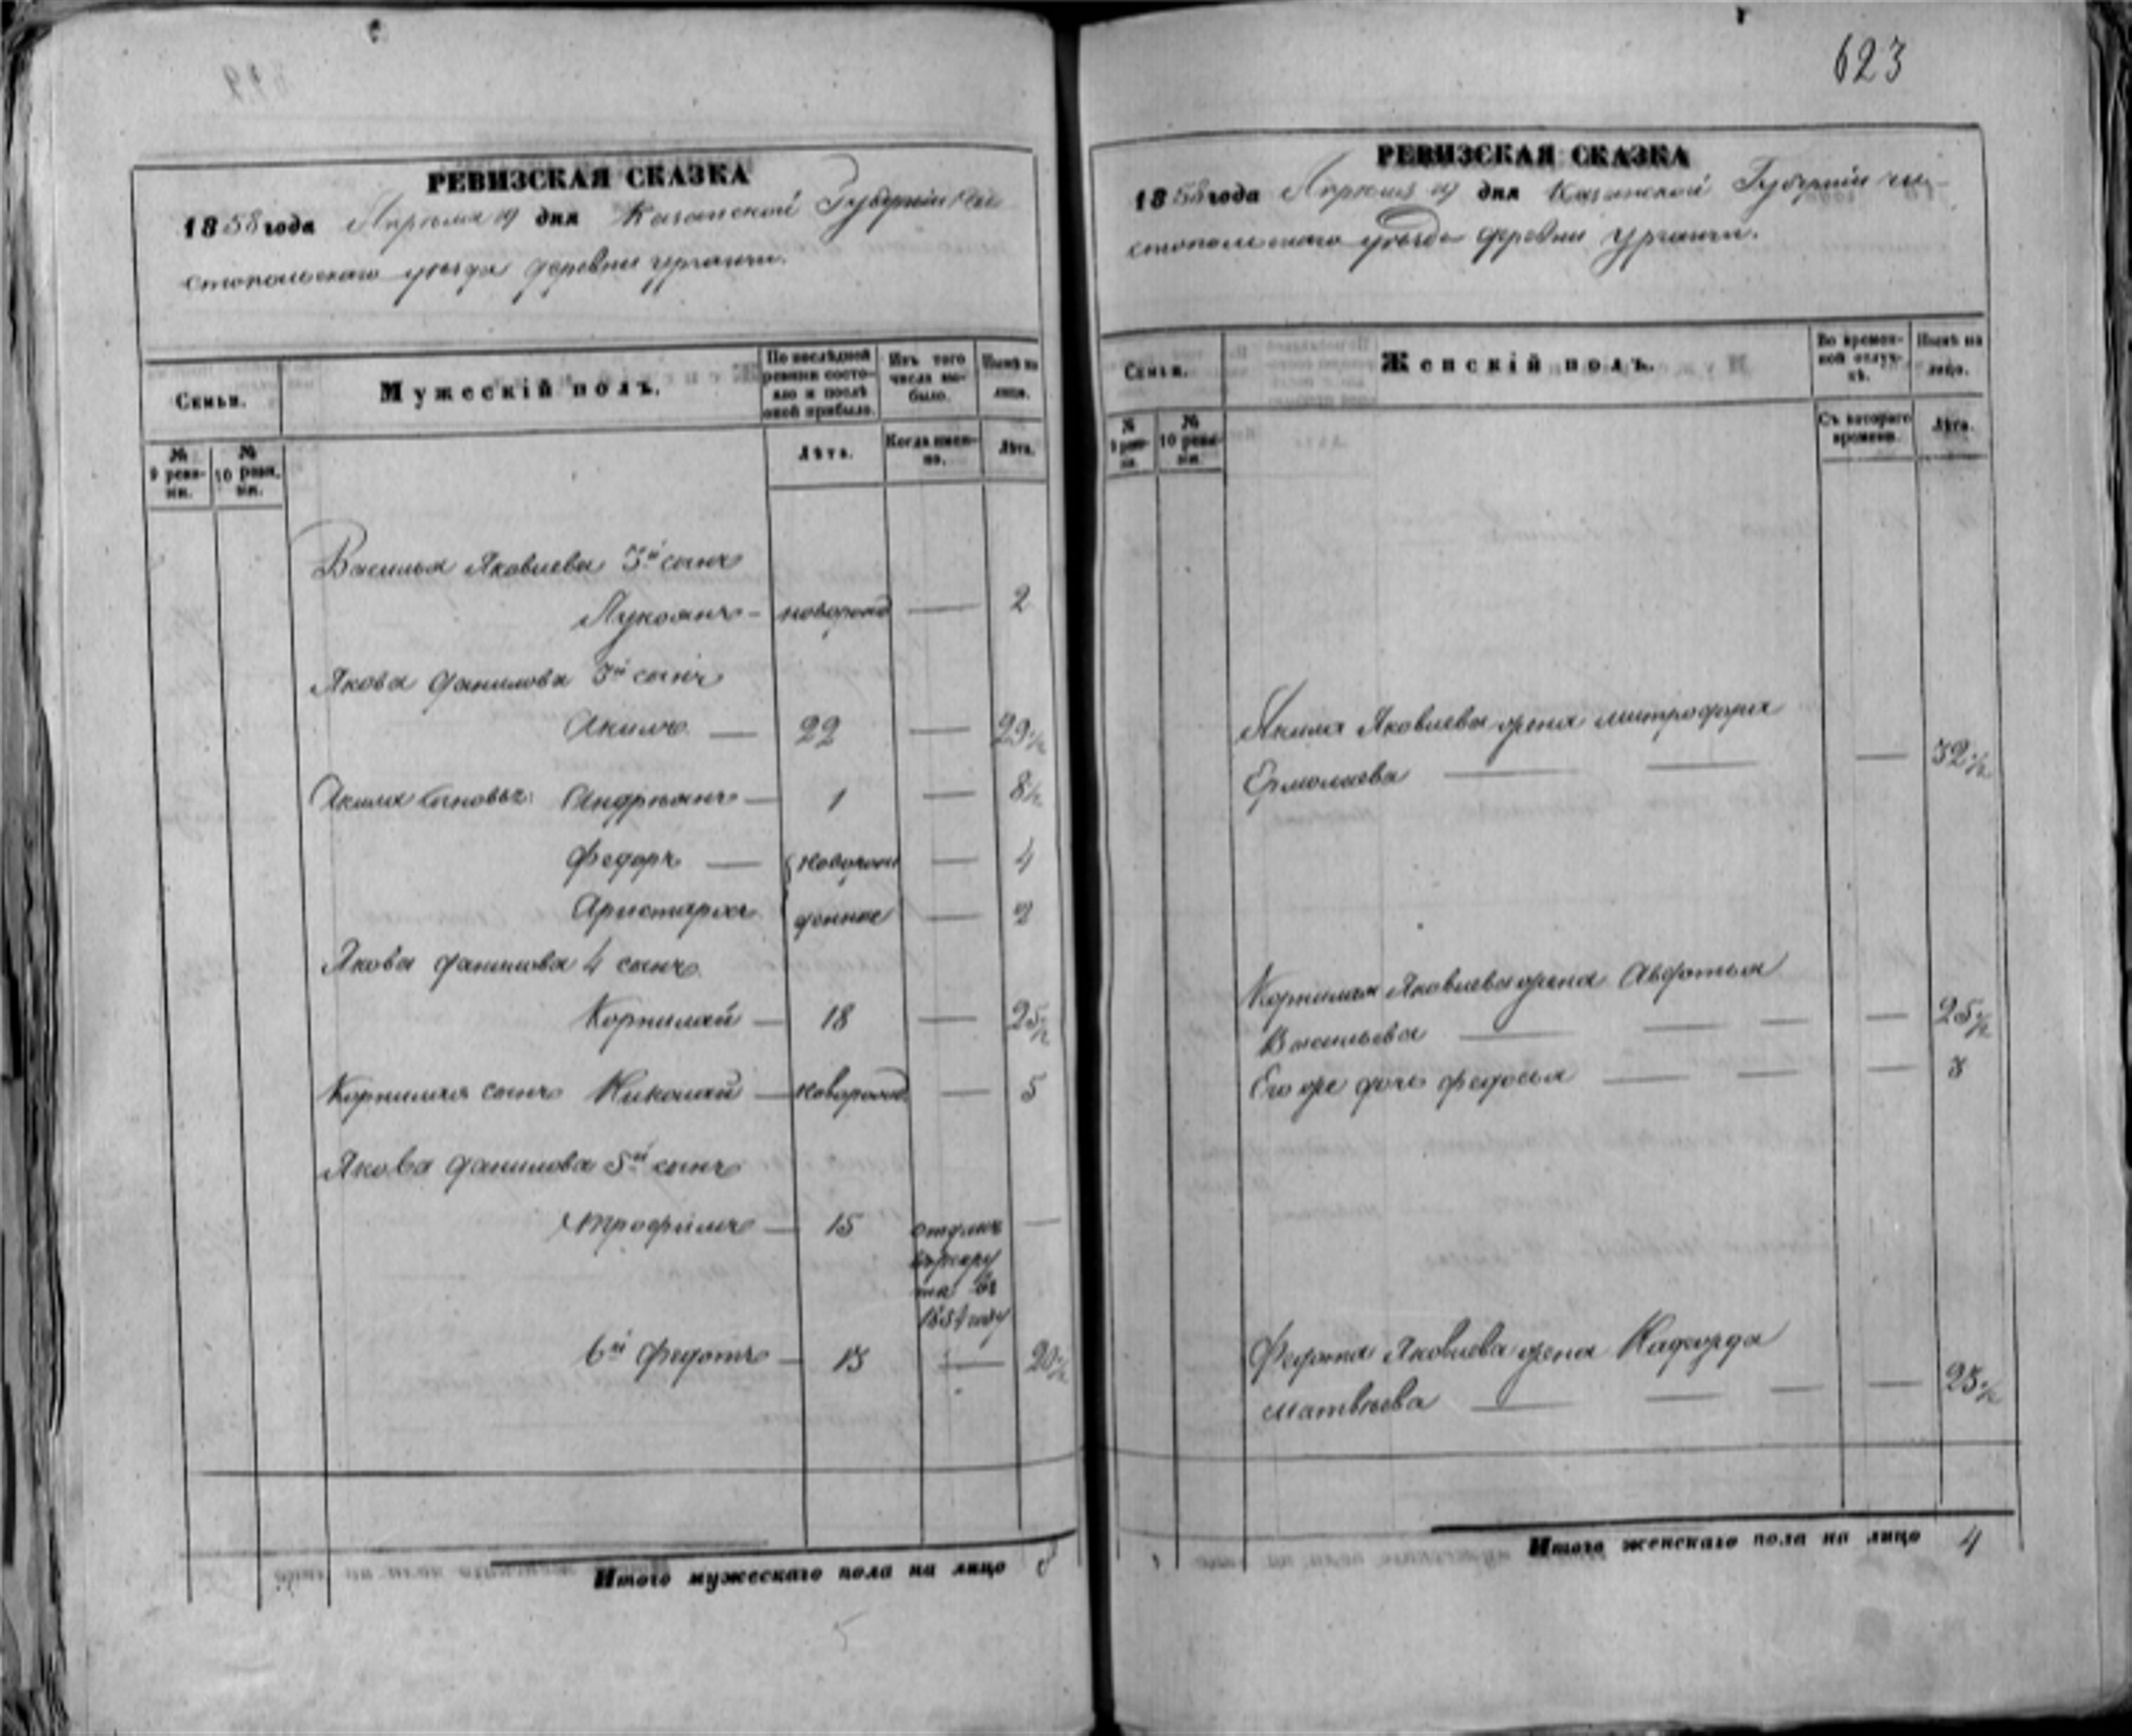 РЕВИЗСКАЯ СКАЗКА
1858 года Апреля 19 дня Казанской Губернии Чи-
стопольскаго уѣзда деревни Урганчи.
Семьи.
Мужескій полъ.
По послѣдней ревизіи состояло и послѣ оной прибыло.
Изъ того числа выбыло.
Нынѣ на лицо.
№ 9 ревизіи.
№ 10 ревизіи.
Лѣта.
Когда именно.
Лѣта.
Василья Яковлева 3й сынъ
Лукоянъ — новорожд — 2
Якова Данилова 3й сынъ
Акимъ — 22 — 29½
Акима сыновья: Андреянъ — 1 — 8½
Федоръ — новорож — 4
Аристархъ денные — 2
Якова Данилова 4 сынъ
Корнилай — 18 — 25½
Корнилая сынъ Николай — новорожд — 5
Якова Данилова 5й сынъ
Трофимъ — 15 отданъ —
въ рекру
та въ
185 году
6й Федотъ — 13 — 20½
Итого мужескаго пола на лицо
623
РЕВИЗСКАЯ СКАЗКА
1858 года Апреля 19 дня Казанской Губерніи Чи-
стопольскаго уѣзда деревни Урганчи.
Семьи.
Женскій полъ.
Во временной отлучкѣ.
Нынѣ на лицо.
№ 9 ревизіи.
№ 10 ревизіи.
Съ котораго времени.
Лѣта.
Акима Яковлева жена
Ермолаева — — — 32½
Корнилая Яковлева жена Авдотья
Васильева — — — — 25½
Его же дочь Федосья — — — 3
Федота Яковлева жена Надежда
Матвѣева — — — — 23½
Итого женскаго пола на лицо 4